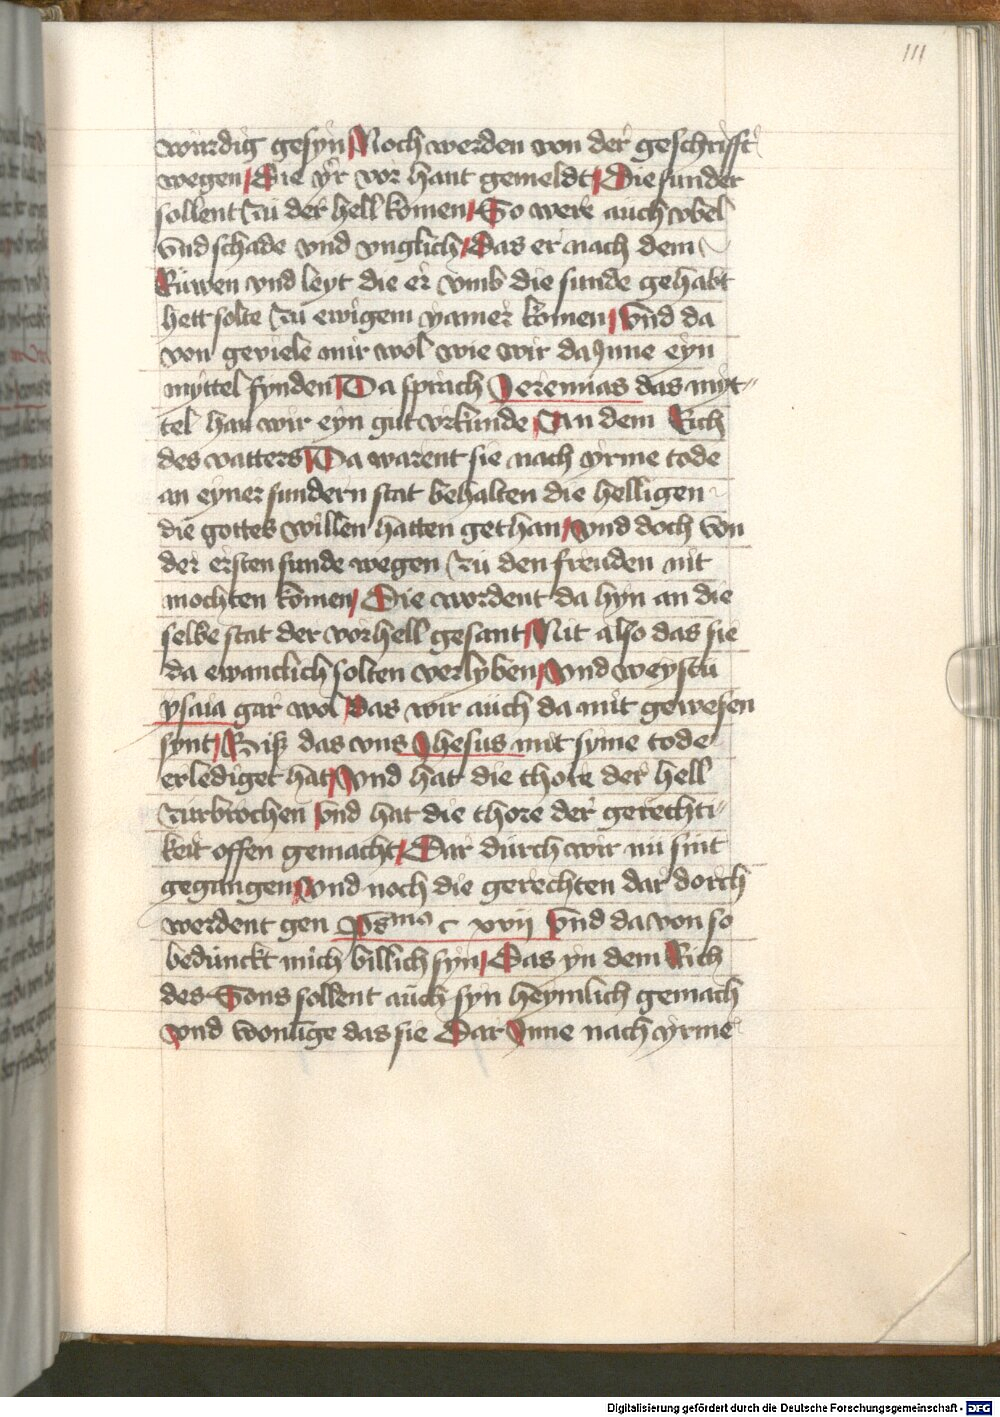 111
wurdig gesyn Noch werden von der geschrifft
wegen Die yr vor hant gemeldt Die sunder
sollent zu der hell komen So were auch vbel
vnd schade vnd vnglich Das er nach dem
Ruwen vnd leyt die er vmb die sunde gehabt
hett solte zu ewigem yamer komen Vnd da
von geviele mir wol wie wir da Inne eyn
myttel fynden Da sprach Jeremias das myt-
tel han wir eyn gut vrkunde An dem Rich
des vatters Da warent sie nach yrme tode
an eyner sundern stat behalten die helligen
die gottes willen hatten gethan vnd doch von
der ersten sunde wegen zu den freuden nit
mochten komen Die wordent da hyn an die
selbe stat der vorhell gesant Nit also das sie
da ewanclich solten verlyben Vnd weystu
ysaia gar wol Das wir auch da mit gewesen
synt Biß das vns Jhesus mit syme tode
erlediget hat Vnd hat die thore der hell
zurbrochen Vnd hat die thore der gerechti-
keit offen gemacht Dar durch wir nu sint
gegangen vnd noch die gerechten dar dorch
werdent gen Psmo c xvij Vnd da von so
bedunckt mich billich syn Das yn dem Rich
des Sons sollent auch syn heymlich gemach
vnd wonuge das sie Dar Inne nach yrme
Digitalisierung gefördert durch die Deutsche Forschungsgemeinschaft - DFG